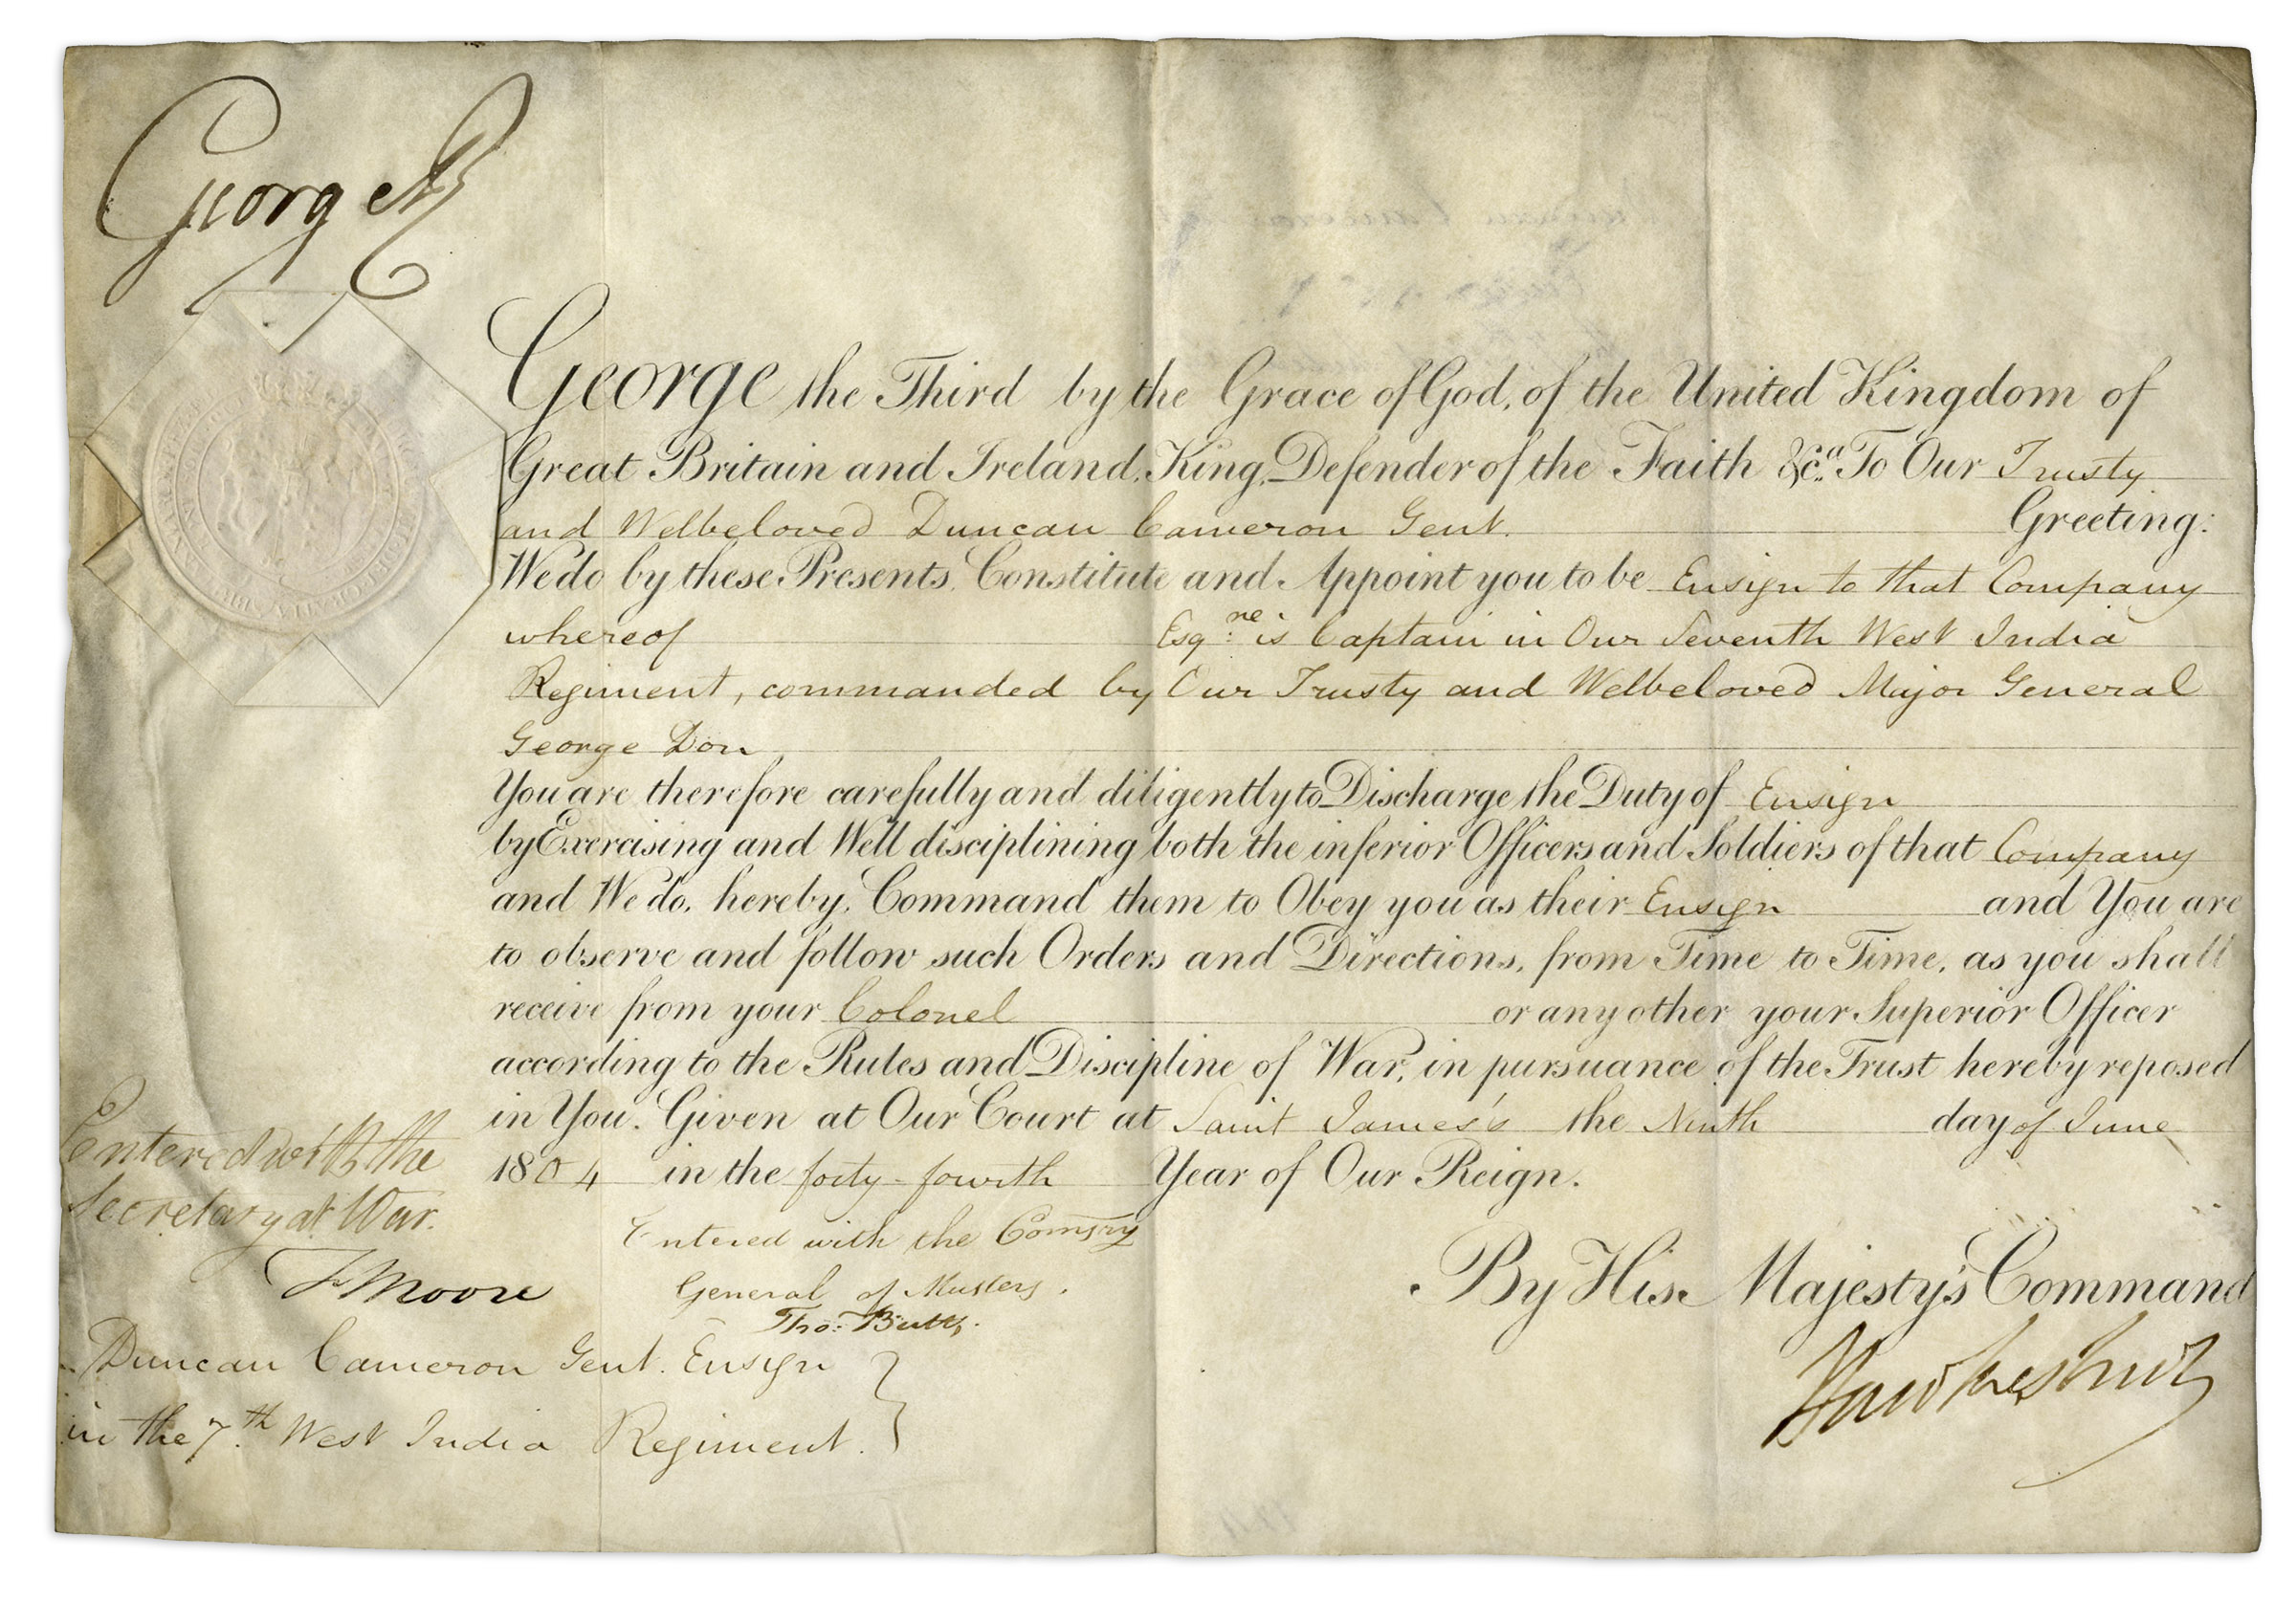 George R
George the Third by the Grace of God, of the United Kingdom of
Great Britain and Ireland, King, Defender of the Faith &c.a To Our Trusty
and Welbeloved Duncan Cameron Gent. Greeting:
We do by these Presents, Constitute and Appoint you to be Ensign to that Company
whereof Esq.re is Captain in Our Seventh West India
Regiment, commanded by Our Trusty and Welbeloved Major General
George Don
You are therefore carefully and diligently to Discharge the Duty of Ensign
by Exercising and Well disciplining both the inferior Officers and Soldiers of that Company
and We do, hereby, Command them to Obey you as their Ensign and You are
to observe and follow such Orders and Directions, from Time to Time, as you shall
receive from your Colonel or any other your Superior Officer
according to the Rules and Discipline of War, in pursuance of the Trust hereby reposed
in You. Given at Our Court at Saint James's the Ninth day of June
1804 in the forty-fourth Year of Our Reign.
By His Majesty's Command
Hawkesbury
Entered with the
Secretary at War.
F Moore
Entered with the Comsry
General of Musters.
Tho: Butts.
Duncan Cameron Gent. Ensign
in the 7.th West India Regiment.